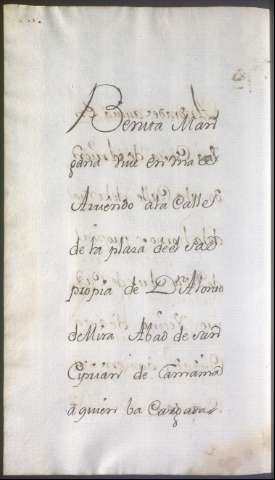 Benita Man
gana vive en una
Arriendo a la Calle
de la plaza de es
propia de Dn Alonso
de Mira Abad de san
Ciprian de
a quien ba Cargada.